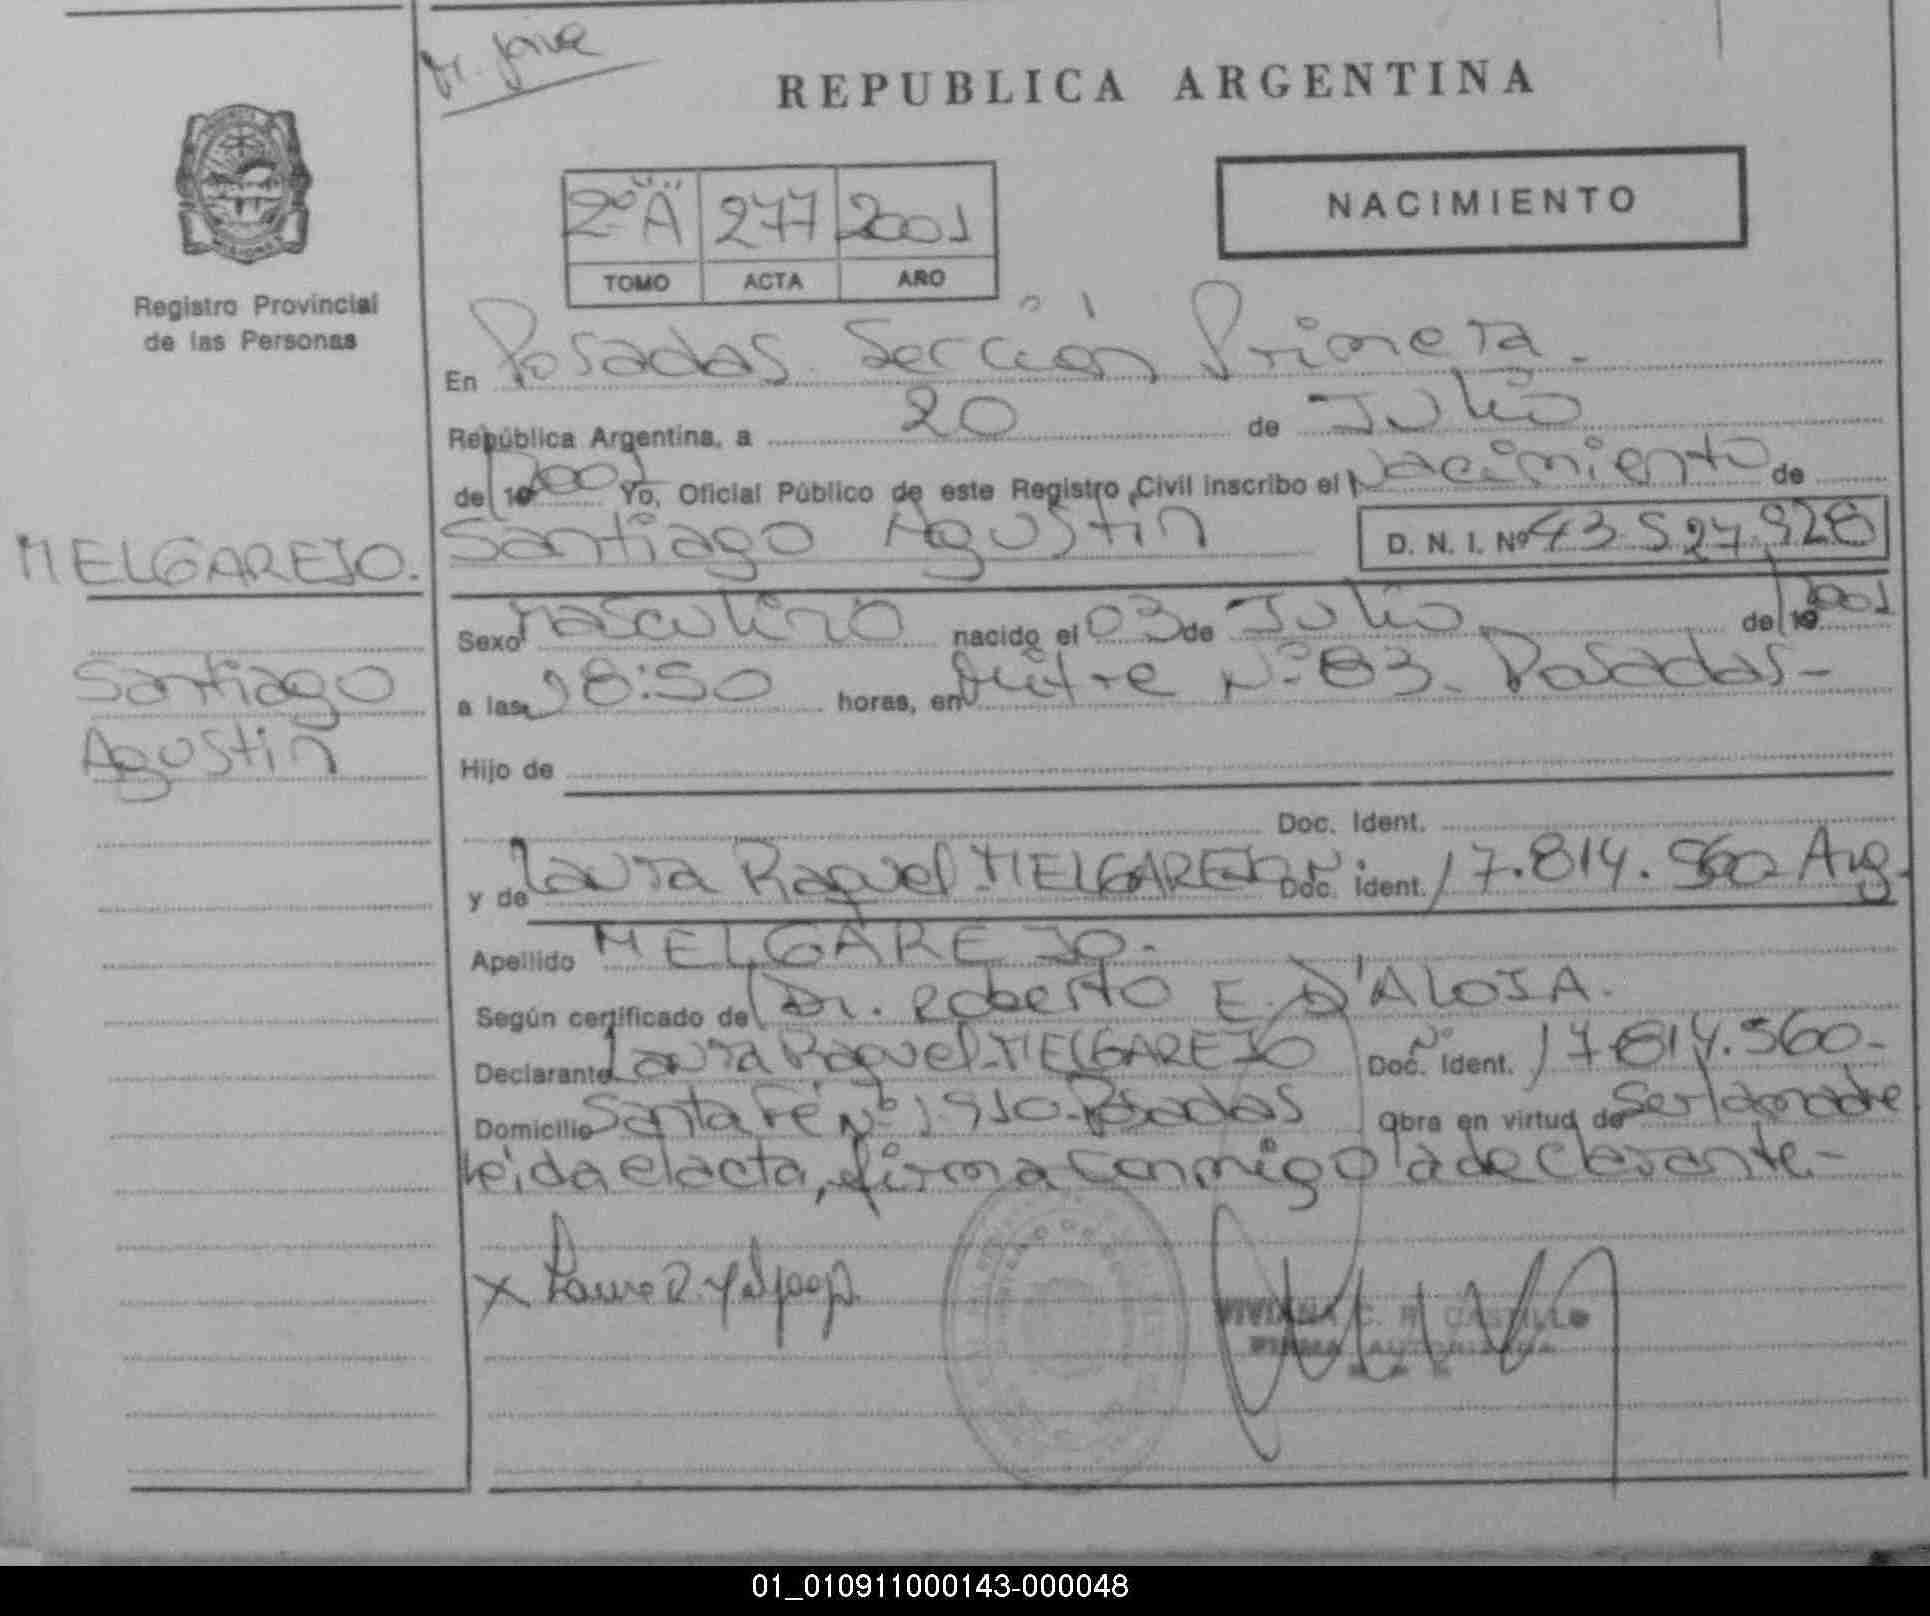 REPUBLICA ARGENTINA
NACIMIENTO
2º "A" 277 2001
TOMO ACTA AÑO
Registro Provincial
de las Personas
En Posadas Sección Primera.-
República Argentina, a 20 de Julio
de 2001 Yo, Oficial Público de este Registro Civil inscribo el Nacimiento de
MELGAREJO.
Santiago Agustin D. N. I. Nº 43.527.928
Sexo Masculino nacido el 03 de Julio de 2001
Santiago
Agustin
a las 18:50 horas, en Mitre Nº 83. Posadas-
Hijo de
Doc. Ident.
y de Laura Raquel MELGAREJO Doc. Ident. Nº 17.814.560 Arg.
Apellido MELGAREJO.-
Según certificado de Dr. Roberto E. D'ALOIA.
Declarante Laura Raquel MELGAREJO Doc. Ident. Nº 17.814.560-
Domicilio Santa Fé Nº 1910-Posadas Obra en virtud de Ser la madre
leida el acta, firma conmigo la declarante.-
VIVIANA C. R. CASTILLO
FIRMA AUTORIZADA
01_010911000143-000048